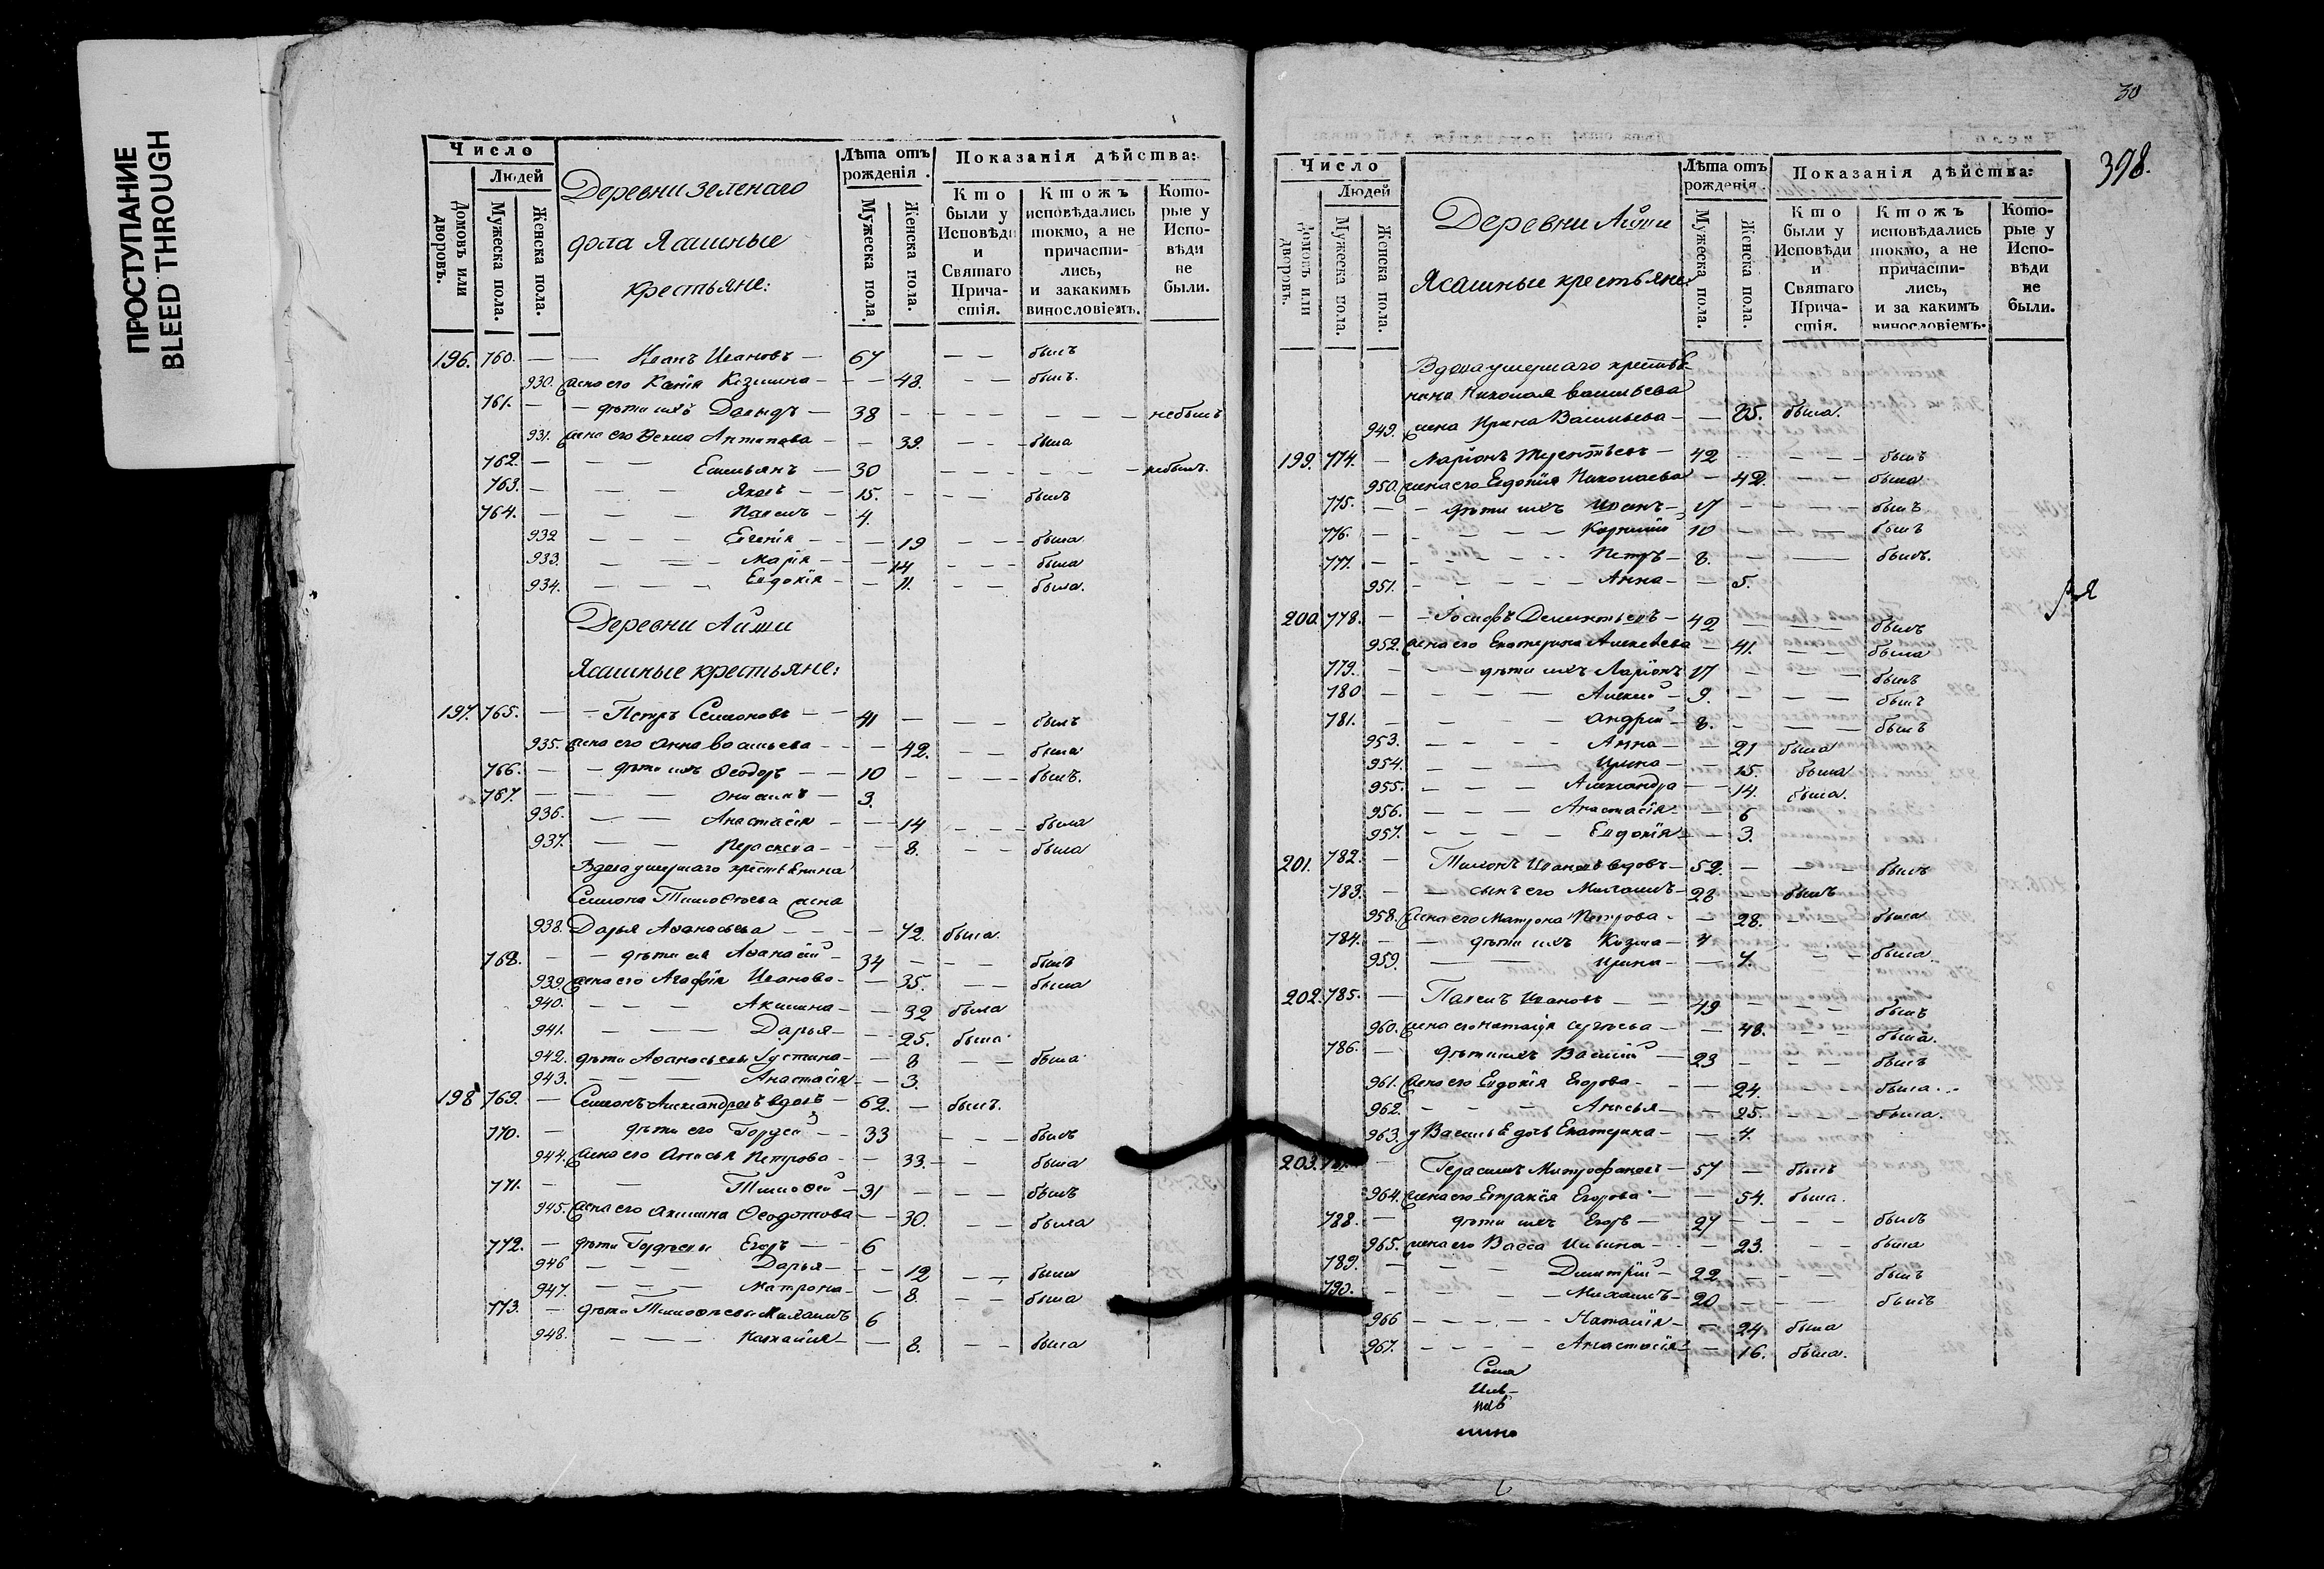 ПРОСТУПАНИЕ
BLEED THROUGH
Число
Людей
Домовъ или дворовъ.
Мужеска пола.
Женска пола.
Деревни Зеленаго
дола Ясашные
крестьяне:
Лѣта отъ рожденія.
Мужеска пола.
Женска пола.
Показанія дѣйства:
Кто были у Исповѣди и Святаго Прича-стія.
Ктожъ исповѣдались токмо, а не причасти-лись, и закакимъ винословіемъ.
Кото-рые у Испо-вѣди не были.
196. 760. — Иванъ Ивановъ — 67 — — былъ
930. жена его Козмина — — 48. — — былъ.
761. — — дѣти ихъ Давыдъ — 38 — — — — — — небылъ
931. жена его Антипова — — 39. — — была
762. — — — Емельянъ — 30 — — — — — небылъ.
763. — — — Яковъ — — 15. — — — былъ
764. — — — Павелъ — 4.
932 — — — Евгенія — — — 19 — — была
933. — — — Марія — — — 14 — — — была
934. — — — Евдокія — — 11. — — была.
Деревни Айши
Ясашные крестьяне:
197. 765. — — Петръ Семеновъ — — 41 — — — былъ
935. жена его Анна Васильева — — — 42. — — была
766. — — дѣти ихъ Ѳеодоръ — — 10 — — — — былъ.
767. — — — Онисимъ — 3.
936. — — — Анастасія — — — 14 — — — была
937. — — Параскева — — — 8. — — была
Вдова умершаго крестьянина
Семена Тимоѳеева жена
938. Дарья Аѳанасьева — — — — 72. была.
768. — — дѣти ея Аѳанасій — 34 — — — былъ
939. жена его Агафія Иванова — — 35. — — была
940. — — — Акилина — — 32 была
941. — — — Дарья — — — 25. была
942. дѣти Аѳанасьевы Іустина — — 8 — — была
943. — — — Анастасія — — 3.
198 769. — Семенъ Александровъ вдовъ — 62. — былъ.
770. — дѣти его Гордей — — 33 — — — былъ
944. жена его Анисья Петрова — — 33. — — была
771. — — Тимоѳей — 31 — — — — былъ
945. жена его Акилина Ѳеодотова — — 30. — — была
772. — дѣти Гордѣевы Егоръ — — 6
946 — — — Дарья — — — 12 — — была
947. — — — Матрона — — 8. — — была
773. — дѣти Тимоѳеевы Михаилъ 6
948. — — — Наталія — — 8. — — была
30
398.
Число
Людей
Домовъ или дворовъ.
Мужеска пола.
Женска пола.
Деревни Айши
Ясашные крестьяне:
Лѣта отъ рожденія.
Мужеска пола.
Женска пола.
Показанія дѣйства:
Кто были у Исповѣди и Святаго Прича-стія.
Ктожъ исповѣдались токмо, а не причасти-лись, и за какимъ винословіемъ.
Кото-рые у Испо-вѣди не были.
Вдова умершаго крестья-
нина Николая Васильева
949. жена Ирина Васильева — — 85. была.
199. 774. — Ларіонъ — 42 — — — былъ
950. жена его Евдокія Николаева — 42. — — была
775. — — дѣти ихъ Иванъ — 17 — — — — былъ
776. — — — — — Корнилій 10 — — — былъ
777. — — — — — Петръ — 8. — — былъ.
951. — — — — — Анна — — 5.
200. 778. — — Іосифъ Дементьевъ — 42 — — — былъ
952. жена его Екатерина Алексѣева — 41. — — была
779. — — — дѣти ихъ Ларіонъ 17 — — — былъ
780 — — — — Алексій — 9. — — — былъ
781. — — — — Андрей — 8. — — — былъ
953. — — — — Анна — — 21 была
954. — — — Ирина — — 15. была
955. — — — — Александра — — 14. была.
956. — — — Анастасія — — 6
957. — — — — Евдокія — — 3.
201. 782. — Тихонъ Ивановъ вдовъ — 52. — — — былъ
783. — — сынъ его Михаилъ — 28 — былъ
958. жена его Матрона Петрова — — 28. — — была
784. — — дѣти ихъ Козма — 4
959. — — — Ирина — — 7. — — была
202. 785. — Павелъ Ивановъ — — 49 — — — былъ
960. жена его Наталія Сергѣева — — 48. — — была.
786. — дѣти ихъ Василій — 23 — — — былъ
961. жена его Евдокія Егорова — — — 24. — — была.
962. — — — Анисья — — 25. — — — была.
963. у Василья дочь Екатерина — — 4.
203. — Герасимъ Митрофановъ — 57 — былъ
964. жена его Евпраксія Егорова — — 54. была.
788. — дѣти ихъ Егоръ — 27 — — — — былъ
965. жена его Васса Ильина — — — 23. — — была
789. — — — — Димитрій — 22 — — — былъ
790. — — — — — Михаилъ — 20 — — — былъ
966 — — — — — Наталія — — 24 была
967. — — — — Анастасія — — 16. была.
Села